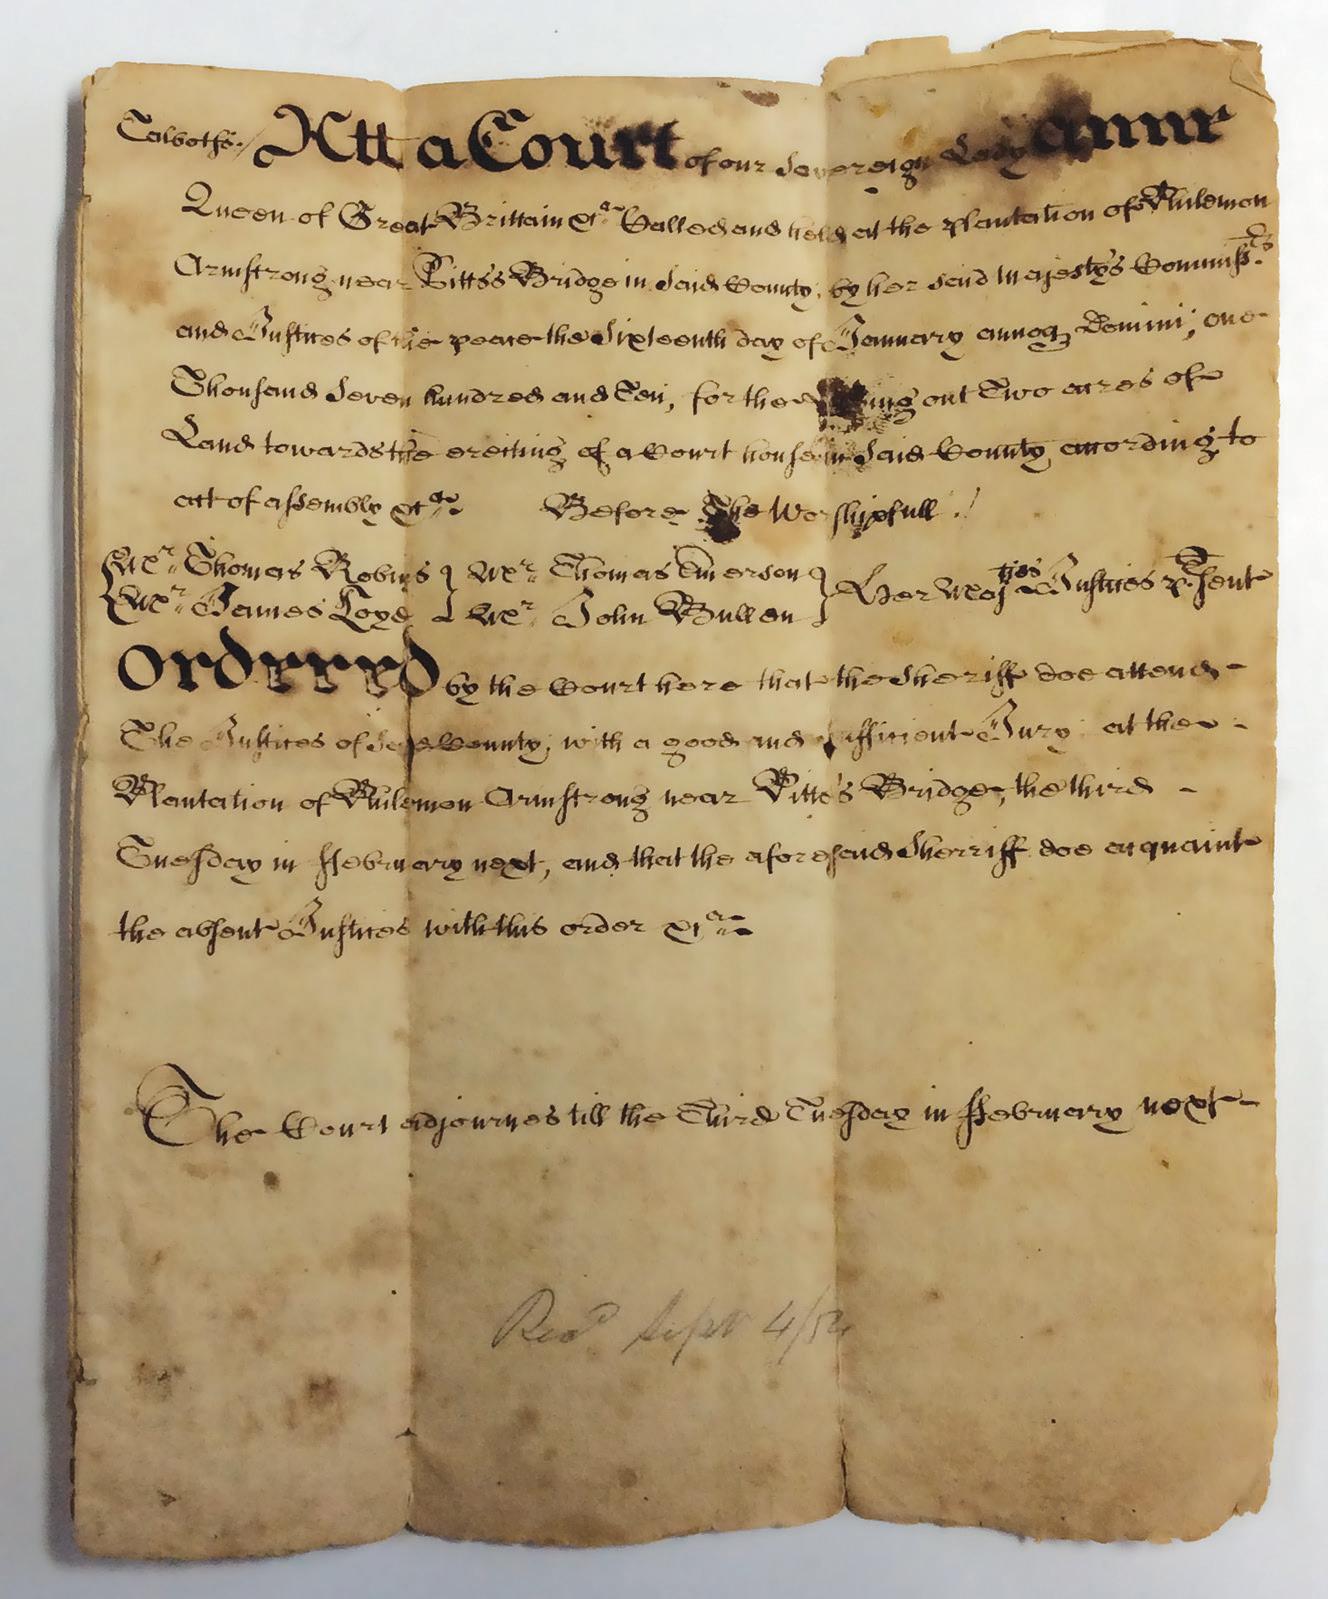 Talbott ss. / Att a Court of our Sovereign Lady Anne
Queen of Great Brittain &ca Called and held at the plantation of Philemon
Armstrong near Pitts's Bridge in Said County, by her Said Majestys Commissrs
and Justices of the peace the Sixteenth day of January annoq Domini; one
Thousand Seven hundred and Ten, for the out Two acres of
Land towards the erecting of a Court house in Said County according to
act of assembly &ca Before The Worshipfull /
Mr Thomas Robins } Mr Thomas Emerson } Her Majties Justices psent
Mr James Loyd } Mr John Bullen
Ordered by the Court here that the Sheriff doe attend -
The Justices of Said County, with a good and Sufficient Jury at the -
Plantation of Philemon Armstrong near Pitts's Bridge, the third -
Tuesday in ffebruary next, and that the aforesaid Sherriff doe acquaint
the absent Justices with this order &ca
The Court adjournes till the Third Tuesday in ffebruary next -
Recd Sept 4/